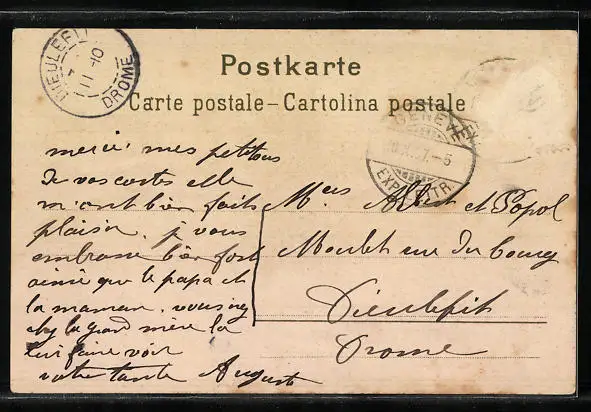 Postkarte
Carte postale – Cartolina postale
DIEULEFIT
11 -10
DROME
GENÈVE
EXP. LETTR.
merci mes petitous
de vos cartes elle
m'ont bien faits
plaisir. je vous
embrasse bien fort
ainsi que le papa et
la maman.
la grand mère la
lui faire voir
votre tante August
Mrs Albert et Popol
Moulet rue du Bourg
Dieulefit
Drome